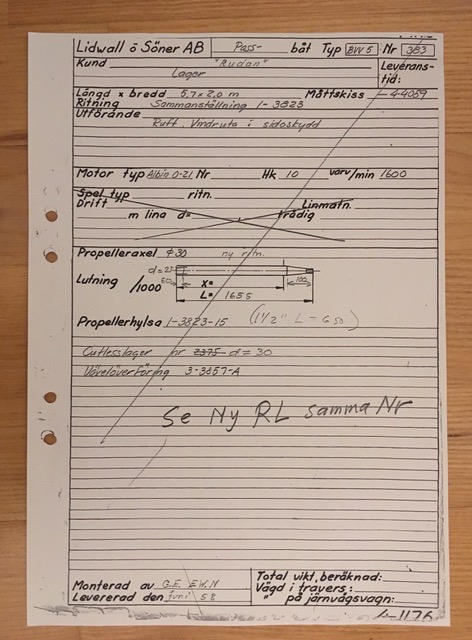 Lidwall ö Söner AB Pass- båt Typ BVV 5 Nr 383
Kund "Rudan" Leverans-
Lager tid:
Längd x bredd 5,7 x 2,0 m Måttskiss 4-4059
Ritning Sammanställning 1-3823
Utförande
Ruff. Vindruta i sidoskydd
Motor typ Albin O-21. Nr Hk 10 varv/min 1600
Spel typ ritn.
Drift Linmatn.
m lina d= trådig
Propelleraxel φ30 ny ritn.
d=25
60 100
Lutning /1000 X=
L= 1655
Propellerhylsa 1-3823-15 (1½" L-650)
Cutlesslager nr 2375 d=30
Växelöverföring 3-3857-A
Se Ny RL samma Nr
Monterad av G.E. E.W.N
Levererad den juni 58
Total vikt, beräknad:
Vägd i travers:
" på järnvägsvagn:
1176